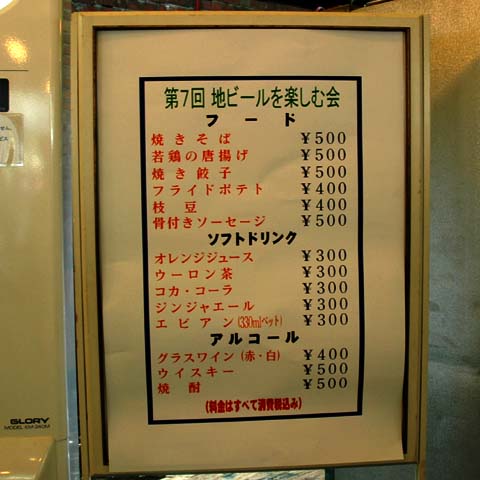 第7回 地ビールを楽しむ会
フード
焼きそば ¥500
若鶏の唐揚げ ¥500
焼き餃子 ¥500
フライドポテト ¥400
枝豆 ¥400
骨付きソーセージ ¥500
ソフトドリンク
オレンジジュース ¥300
ウーロン茶 ¥300
コカ・コーラ ¥300
ジンジャエール ¥300
エビアン(330mlペット) ¥300
アルコール
グラスワイン(赤・白) ¥400
ウイスキー ¥500
焼酎 ¥500
(料金はすべて消費税込み)
GLORY